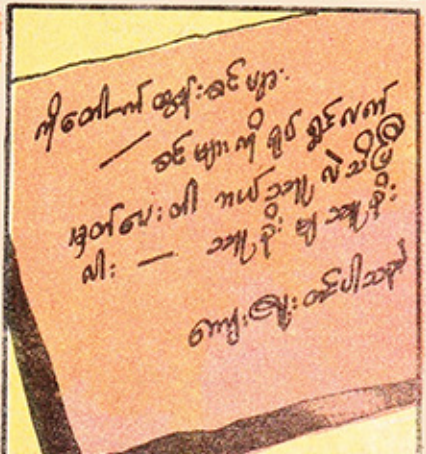 ခင်ဗျား
— ခင်ဗျားကို ရုပ်ရှင်လက်
မှတ်ပေးတါ ဘယ်သူ လဲသိပြီ
လား — သူခိုး မှ သူခိုး
ကျေးဇူးတင်ပါသည်